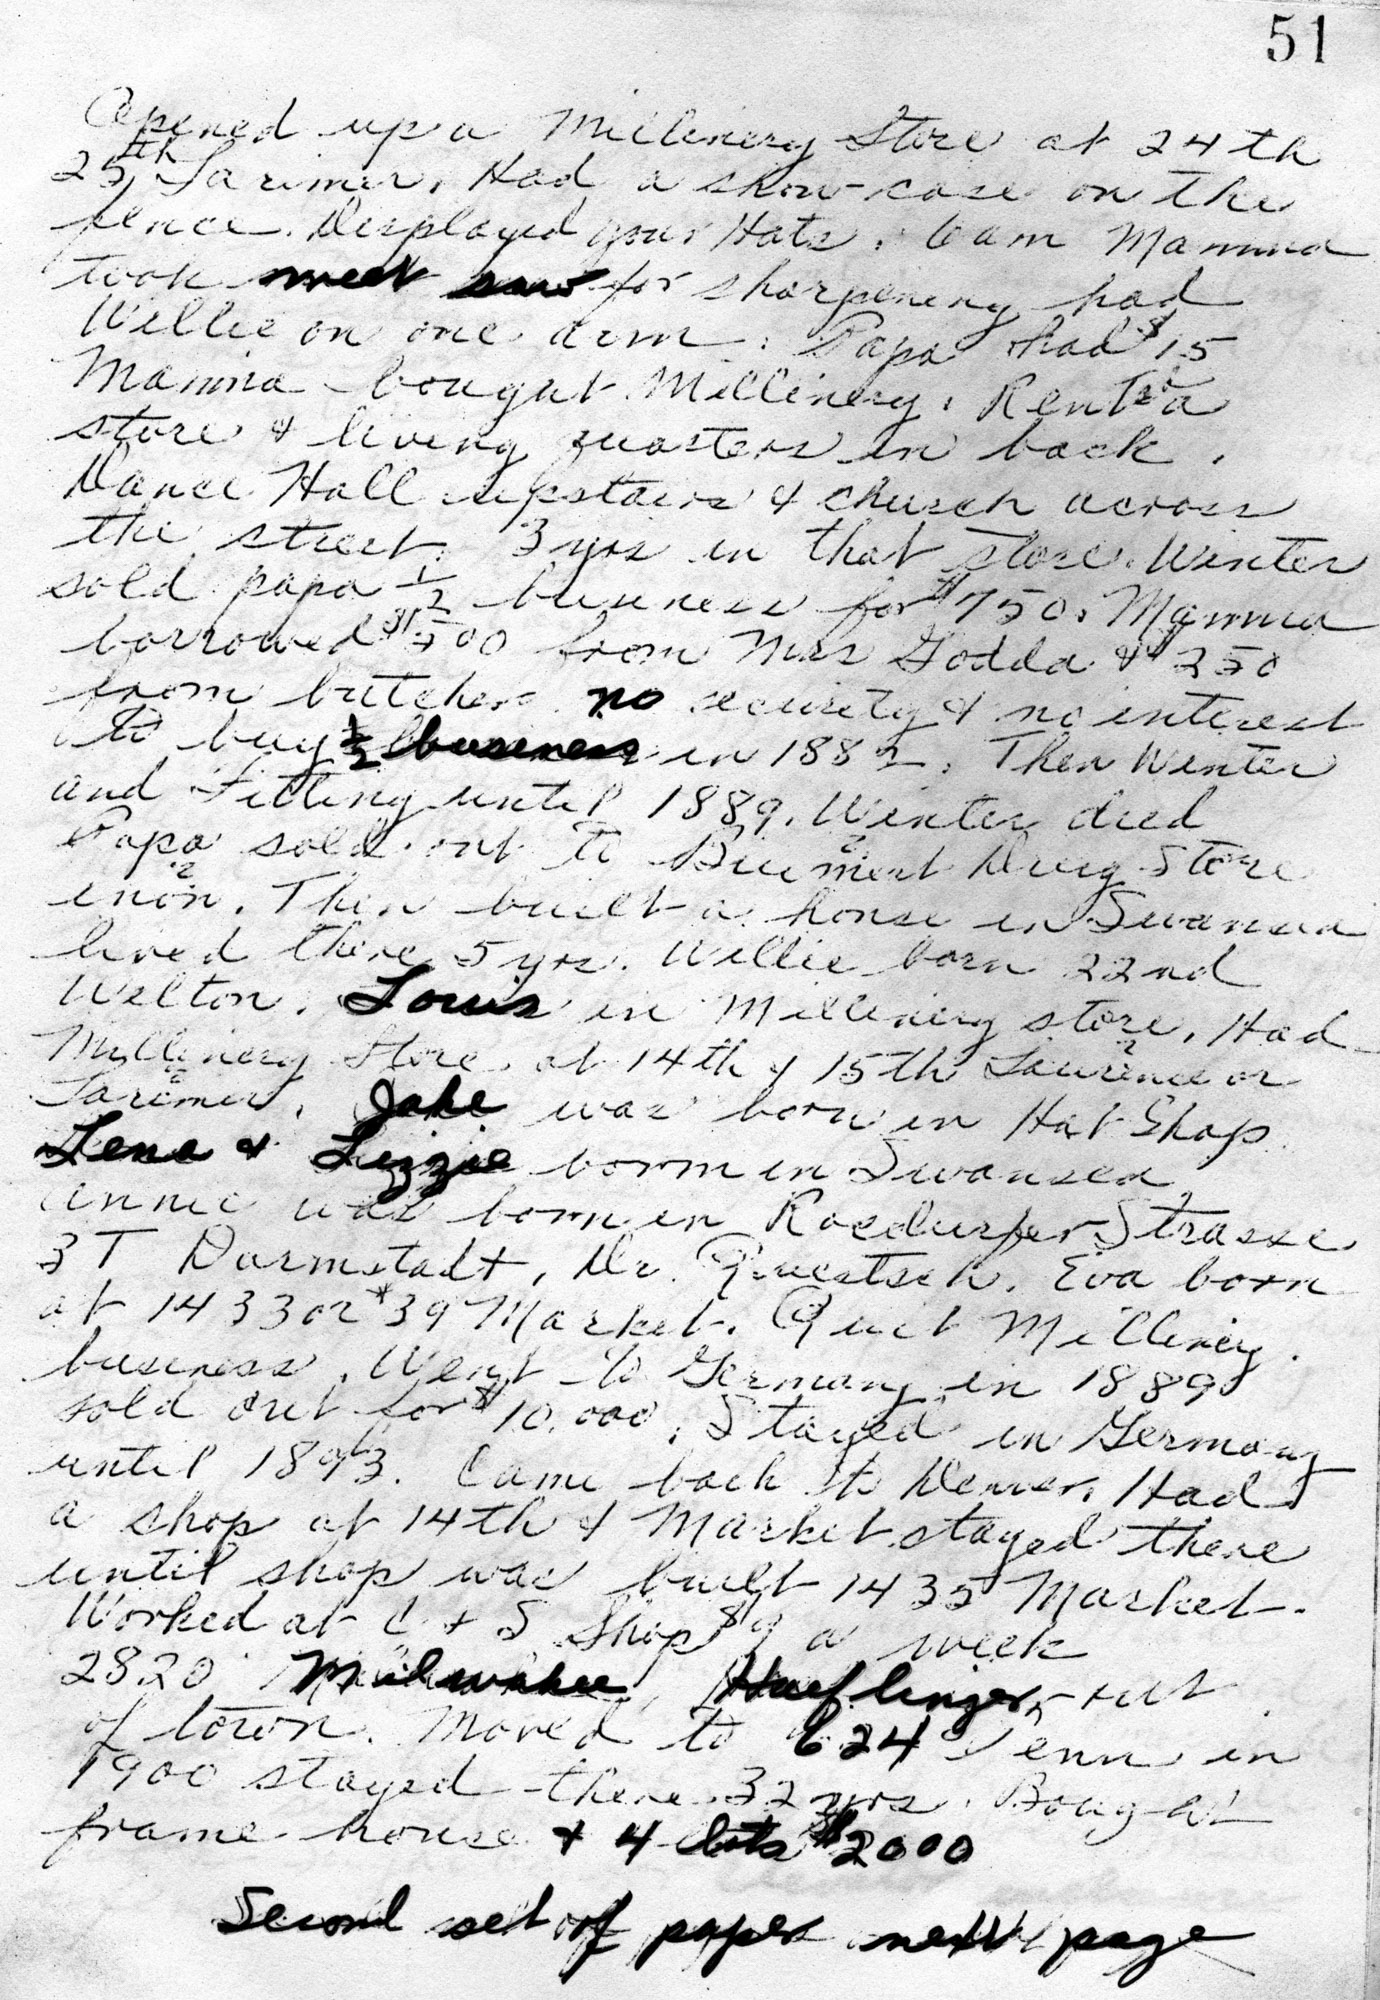 51
Opened up a Millinery Store at 24th
25th Larimer. Had a show case on the
fence. Displayed your Hats. Mamma
took meat saw for sharpening had
Willie on one arm. Papa had $15
Mamma bought Millinery. Rent a
store & living quarters in back.
Dance Hall upstairs & church across
the street. 3 yrs in that store. Winter
sold papa 1/2 business for $750. Mamma
borrowed $500 from Mrs Godda & $250
from butcher no security & no interest
to buy 1/2 business in 1882. Then Winter
and Fitting until 1889. Winter died
Papa sold out to Drug Store
man. Then built a house in Swansea
lived there 5 yrs. Willie born 22nd
Welton. Louis in Millinery store. Had
Millinery Store at 14th & 15th Laurence or
Larimer. Jake was born in Hat Shop.
Lena & Lizzie born in Swansea
Annie was born in Roedurfer Strasse
3T Darmstadt, Dr. Eva born
at 1433 or *39 Market. Quit Millinery
business. Went to Germany in 1889
sold out for $10.000. Stayed in Germany
until 1893. Came back to Denver. Had
a shop at 14th & Market stayed there
until shop was built 1435 Market.
Worked at C + S Shop $9 a week
2820 Milwakee, Haeflinger, out
of town. Moved to 624 Penn in
1900 stayed there 32 yrs. Bought
frame house + 4 lots $2000
Second set of paper next page